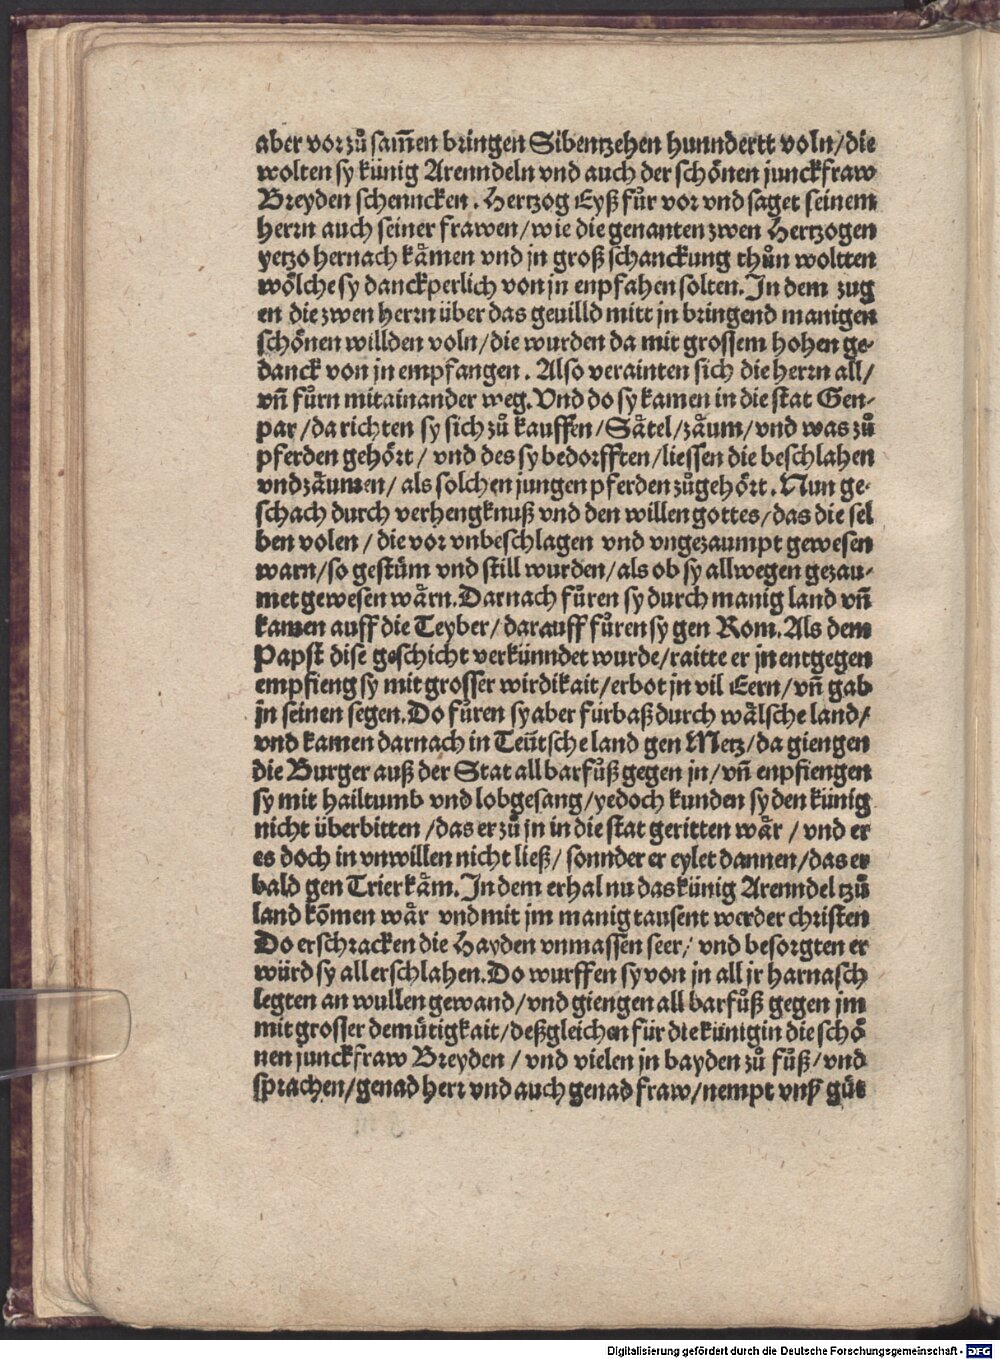 aber vor zů sam̄en bringen Sibentzehen hunndertt voln/die
wolten sy künig Arenndeln vnd auch der schönen junckfraw
Breyden schenncken. Hertzog Eyß fůr vor vnd saget seinem
herrn auch seiner frawen/wie die genanten zwen Hertzogen
yetzo hernach kämen vnd jn groß schanckung thůn woltten
wölche sy danckperlich von jn enpfahen solten. In dem zug
en die zwen herrn über das geuilld mitt jn bringend manigen
schönen willden voln/die wurden da mit grossem hohen ge-
danck von jn empfangen. Also verainten sich die herrn all/
vn̄ fůrn mitainander weg. Vnd do sy kamen in die stat Gen-
par/da richten sy sich zů kauffen/Sätel/zäum/vnd was zů
pferden gehört/ vnd des sy bedorfften/liessen die beschlahen
vnd zäumen/ als solchen jungen pferden zůgehört. Nun ge-
schach durch verhengknuß vnd den willen gottes/das die sel
ben volen/die vor vnbeschlagen vnd vngezaumpt gewesen
warn/so gestüm vnd still wurden/als ob sy allwegen gezau-
met gewesen wärn. Darnach fůren sy durch manig land vn̄
kamen auff die Teyber/darauff fůren sy gen Rom. Als dem
Papst dise geschicht verkünndet wurde/raitte er jn entgegen
empfieng sy mit grosser wirdikait/erbot jn vil Eern/vn̄ gab
jn seinen segen. Do fůren sy aber fürbaß durch wälsche land/
vnd kamen darnach in Teütsche land gen Metz/da giengen
die Burger auß der Stat all barfůß gegen jn/vn̄ enpfiengen
sy mit hailtumb vnd lobgesang/yedoch kunden sy den künig
nicht überbitten/das er zů jn in die stat geritten wär/vnd er
es doch in vnwillen nicht ließ/ sonnder er eylet dannen/das er
bald gen Trier käm. In dem erhal nu das künig Arenndel tzů
land kōmen wär vnd mit jm manig tausent werder christen
Do erschracken die Hayden vnmassen seer/ vnd besorgten er
würd sy all erschlahen. Do wurffen sy von jn all jr harnasch
legten an wullen gewand/vnd giengen all barfůß gegen jm
mit grosser demütigkait/deßgleichen für die künigin die schö
nen junckfraw Breyden/vnd vielen jn bayden zů fůß/vnd
sprachen/genad herr vnd auch genad fraw/nempt vnß gůt
Digitalisierung gefördert durch die Deutsche Forschungsgemeinschaft - DFG